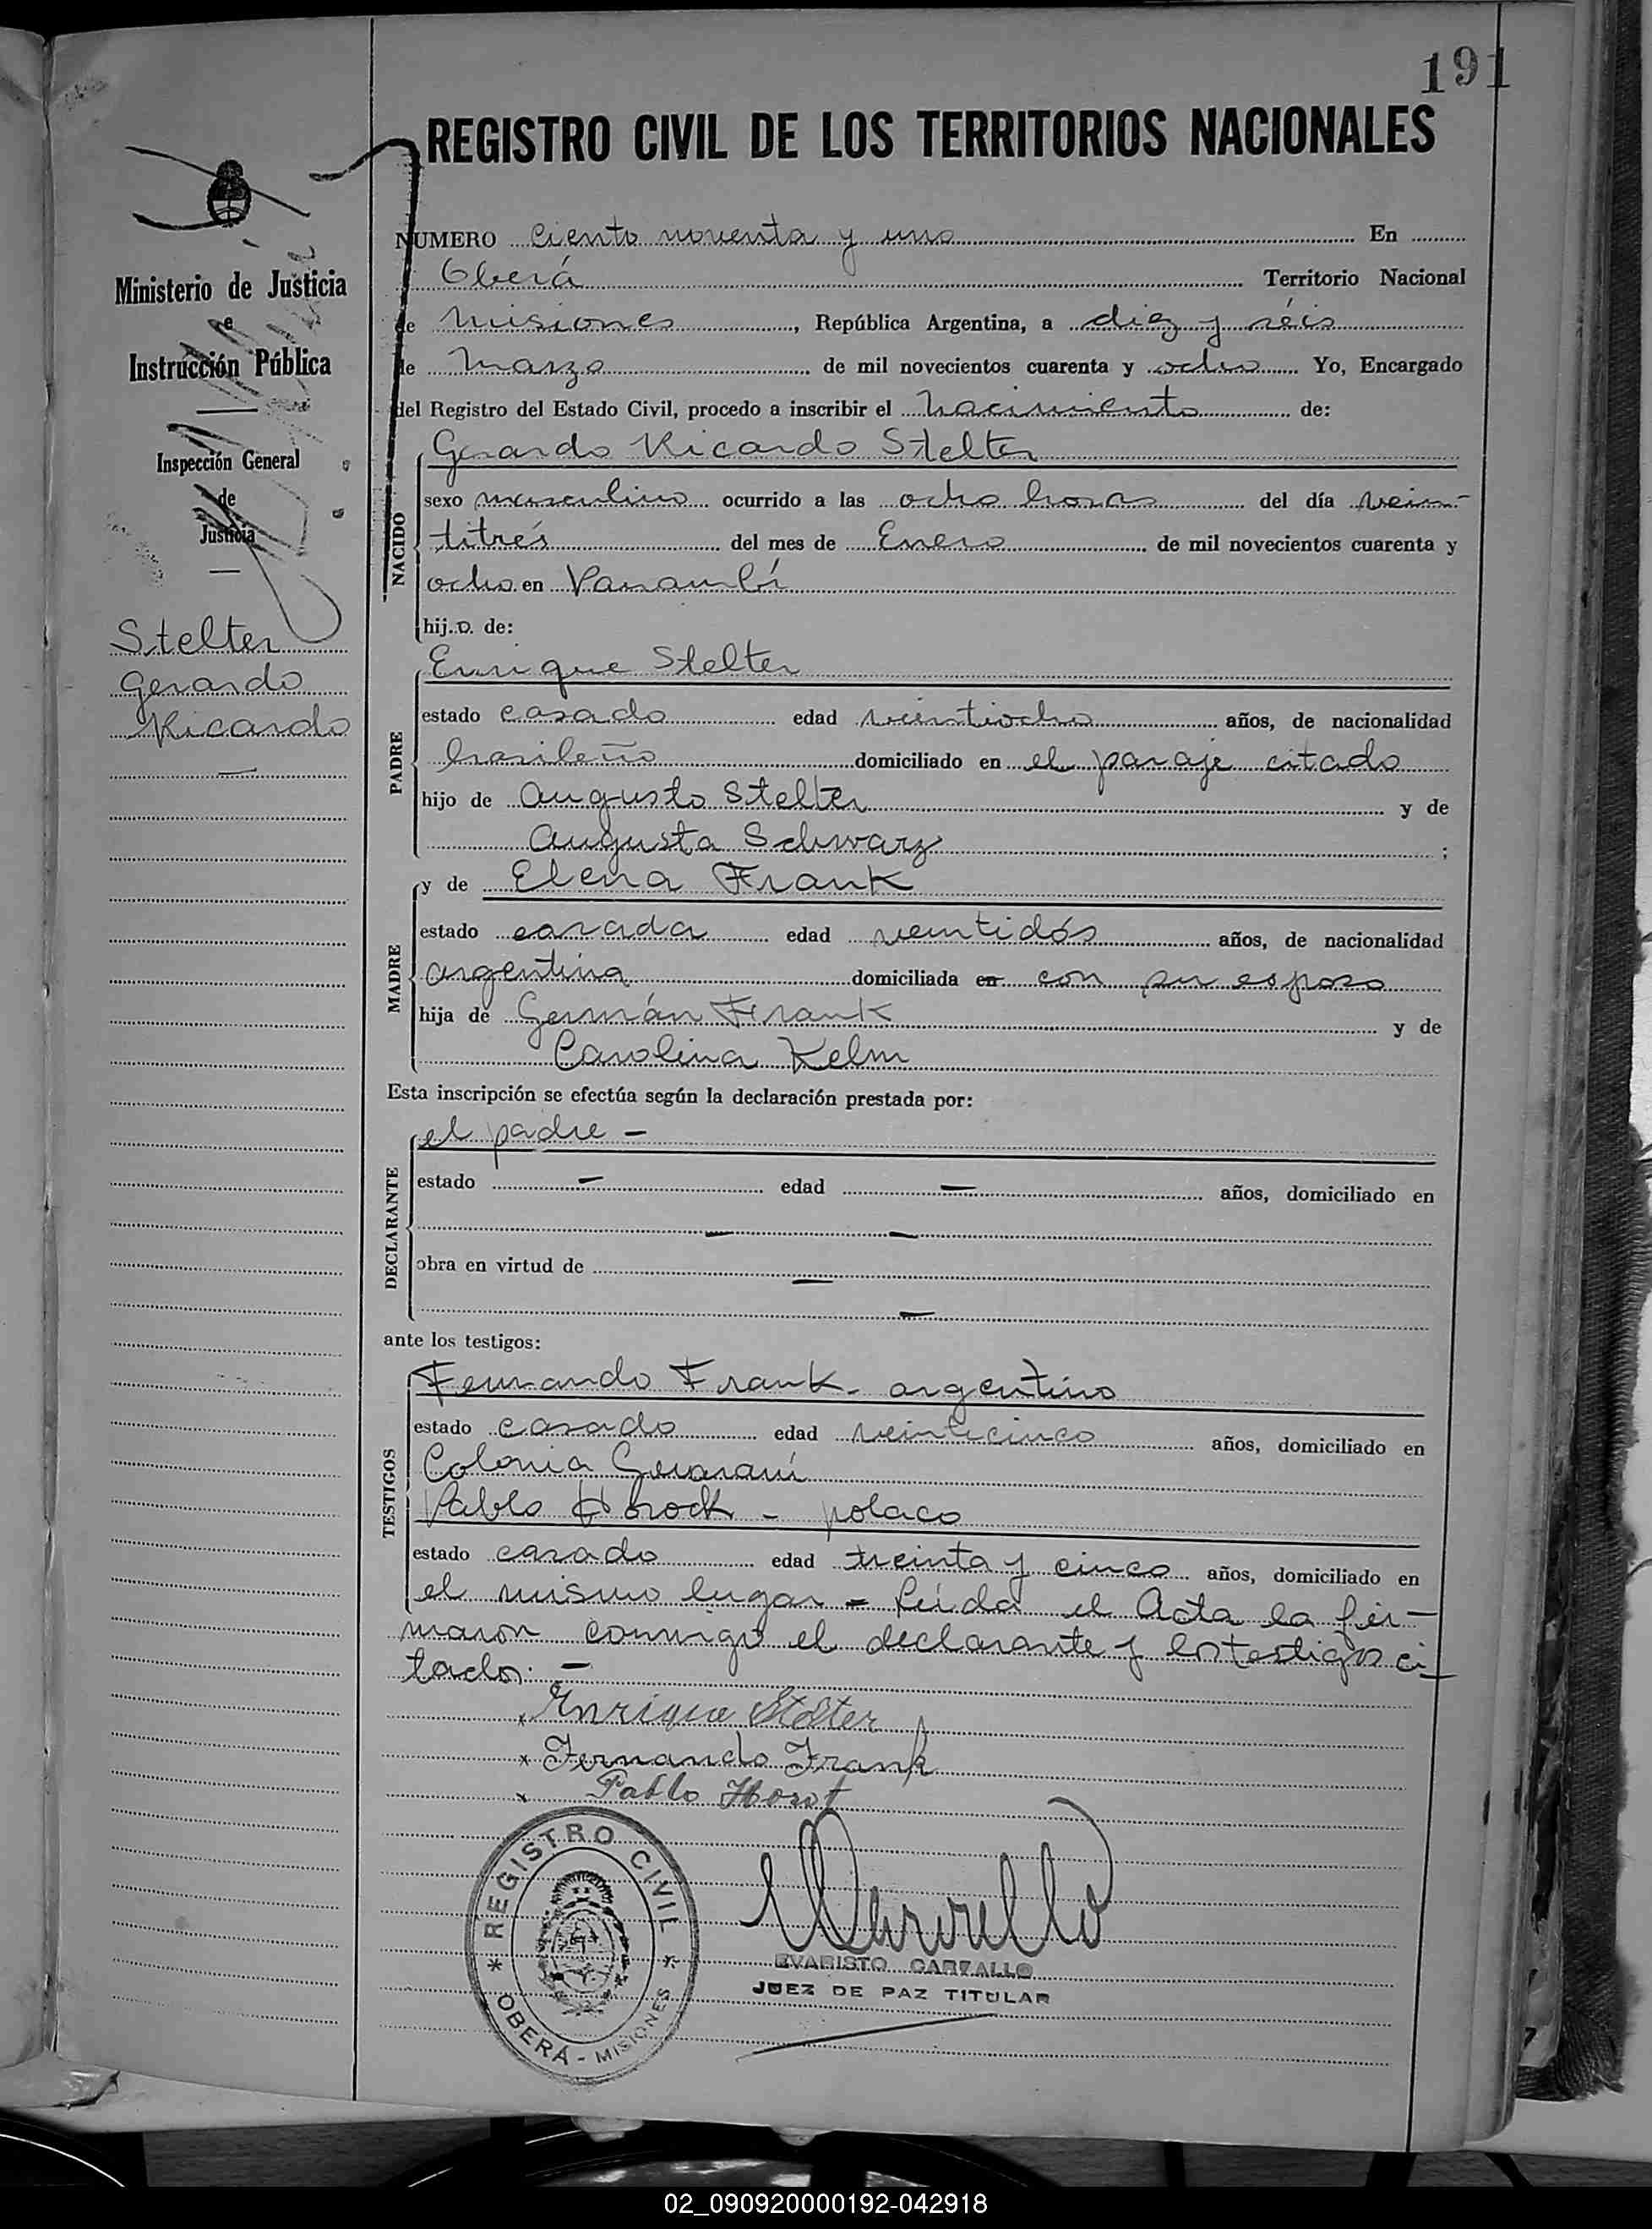 191
REGISTRO CIVIL DE LOS TERRITORIOS NACIONALES
Ministerio de Justicia
e
Instrucción Pública
Inspección General
de
Justicia
Stelter
Gerardo
Ricardo
NUMERO ciento noventa y uno En
Oberá Territorio Nacional
de Misiones, República Argentina, a diez y séis
de Marzo de mil novecientos cuarenta y ocho Yo, Encargado
del Registro del Estado Civil, procedo a inscribir el nacimiento de:
Gerardo Ricardo Stelter
NACIDO
sexo masculino ocurrido a las ocho horas del día vein-
titrés del mes de Enero de mil novecientos cuarenta y
ocho en Panambí
hijo de:
Enrique Stelter
PADRE
estado casado edad veintiocho años, de nacionalidad
brasileño domiciliado en el paraje citado
hijo de Augusto Stelter y de
Augusta Schwarz ;
y de Elena Frank
MADRE
estado casada edad veintidós años, de nacionalidad
argentina domiciliada en con su esposo
hija de Germán Frank y de
Carolina Kelm
Esta inscripción se efectúa según la declaración prestada por:
el padre -
DECLARANTE
estado - edad - años, domiciliado en
obra en virtud de
ante los testigos:
TESTIGOS
Fernando Frank - argentino
estado casado edad veinticinco años, domiciliado en
Colonia Guaraní
Pablo - polaco
estado casado edad treinta y cinco años, domiciliado en
el mismo lugar - Leída el Acta la fir-
maron conmigo el declarante y los testigos ci-
tados. -
Enrique Stelter
Fernando Frank
Pablo
REGISTRO CIVIL
OBERÁ - MISIONES
EVARISTO CARVALLO
JUEZ DE PAZ TITULAR
02_090920000192-042918